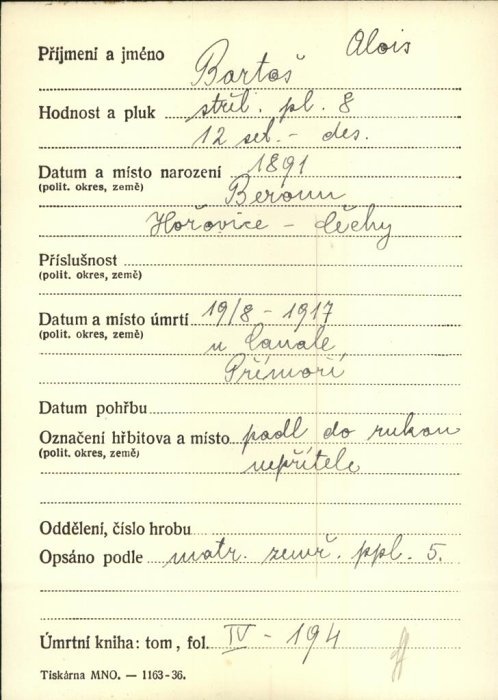 Příjmení a jméno Bartoš Alois
Hodnost a pluk střel. pl. 8
12 set. - des.
Datum a místo narození 1891
(polit. okres, země) Beroun
Hořovice - čěchy
Příslušnost
(polit. okres, země)
Datum a místo úmrtí 19/8 - 1917
(polit. okres, země) u Canale
Přímoří
Datum pohřbu
Označení hřbitova a místo padl do rukou
(polit. okres, země) nepřítele
Oddělení, číslo hrobu
Opsáno podle matr. zemř. ppl. 5.
Úmrtní kniha: tom, fol. IV - 194
Tiskárna MNO. — 1163-36.